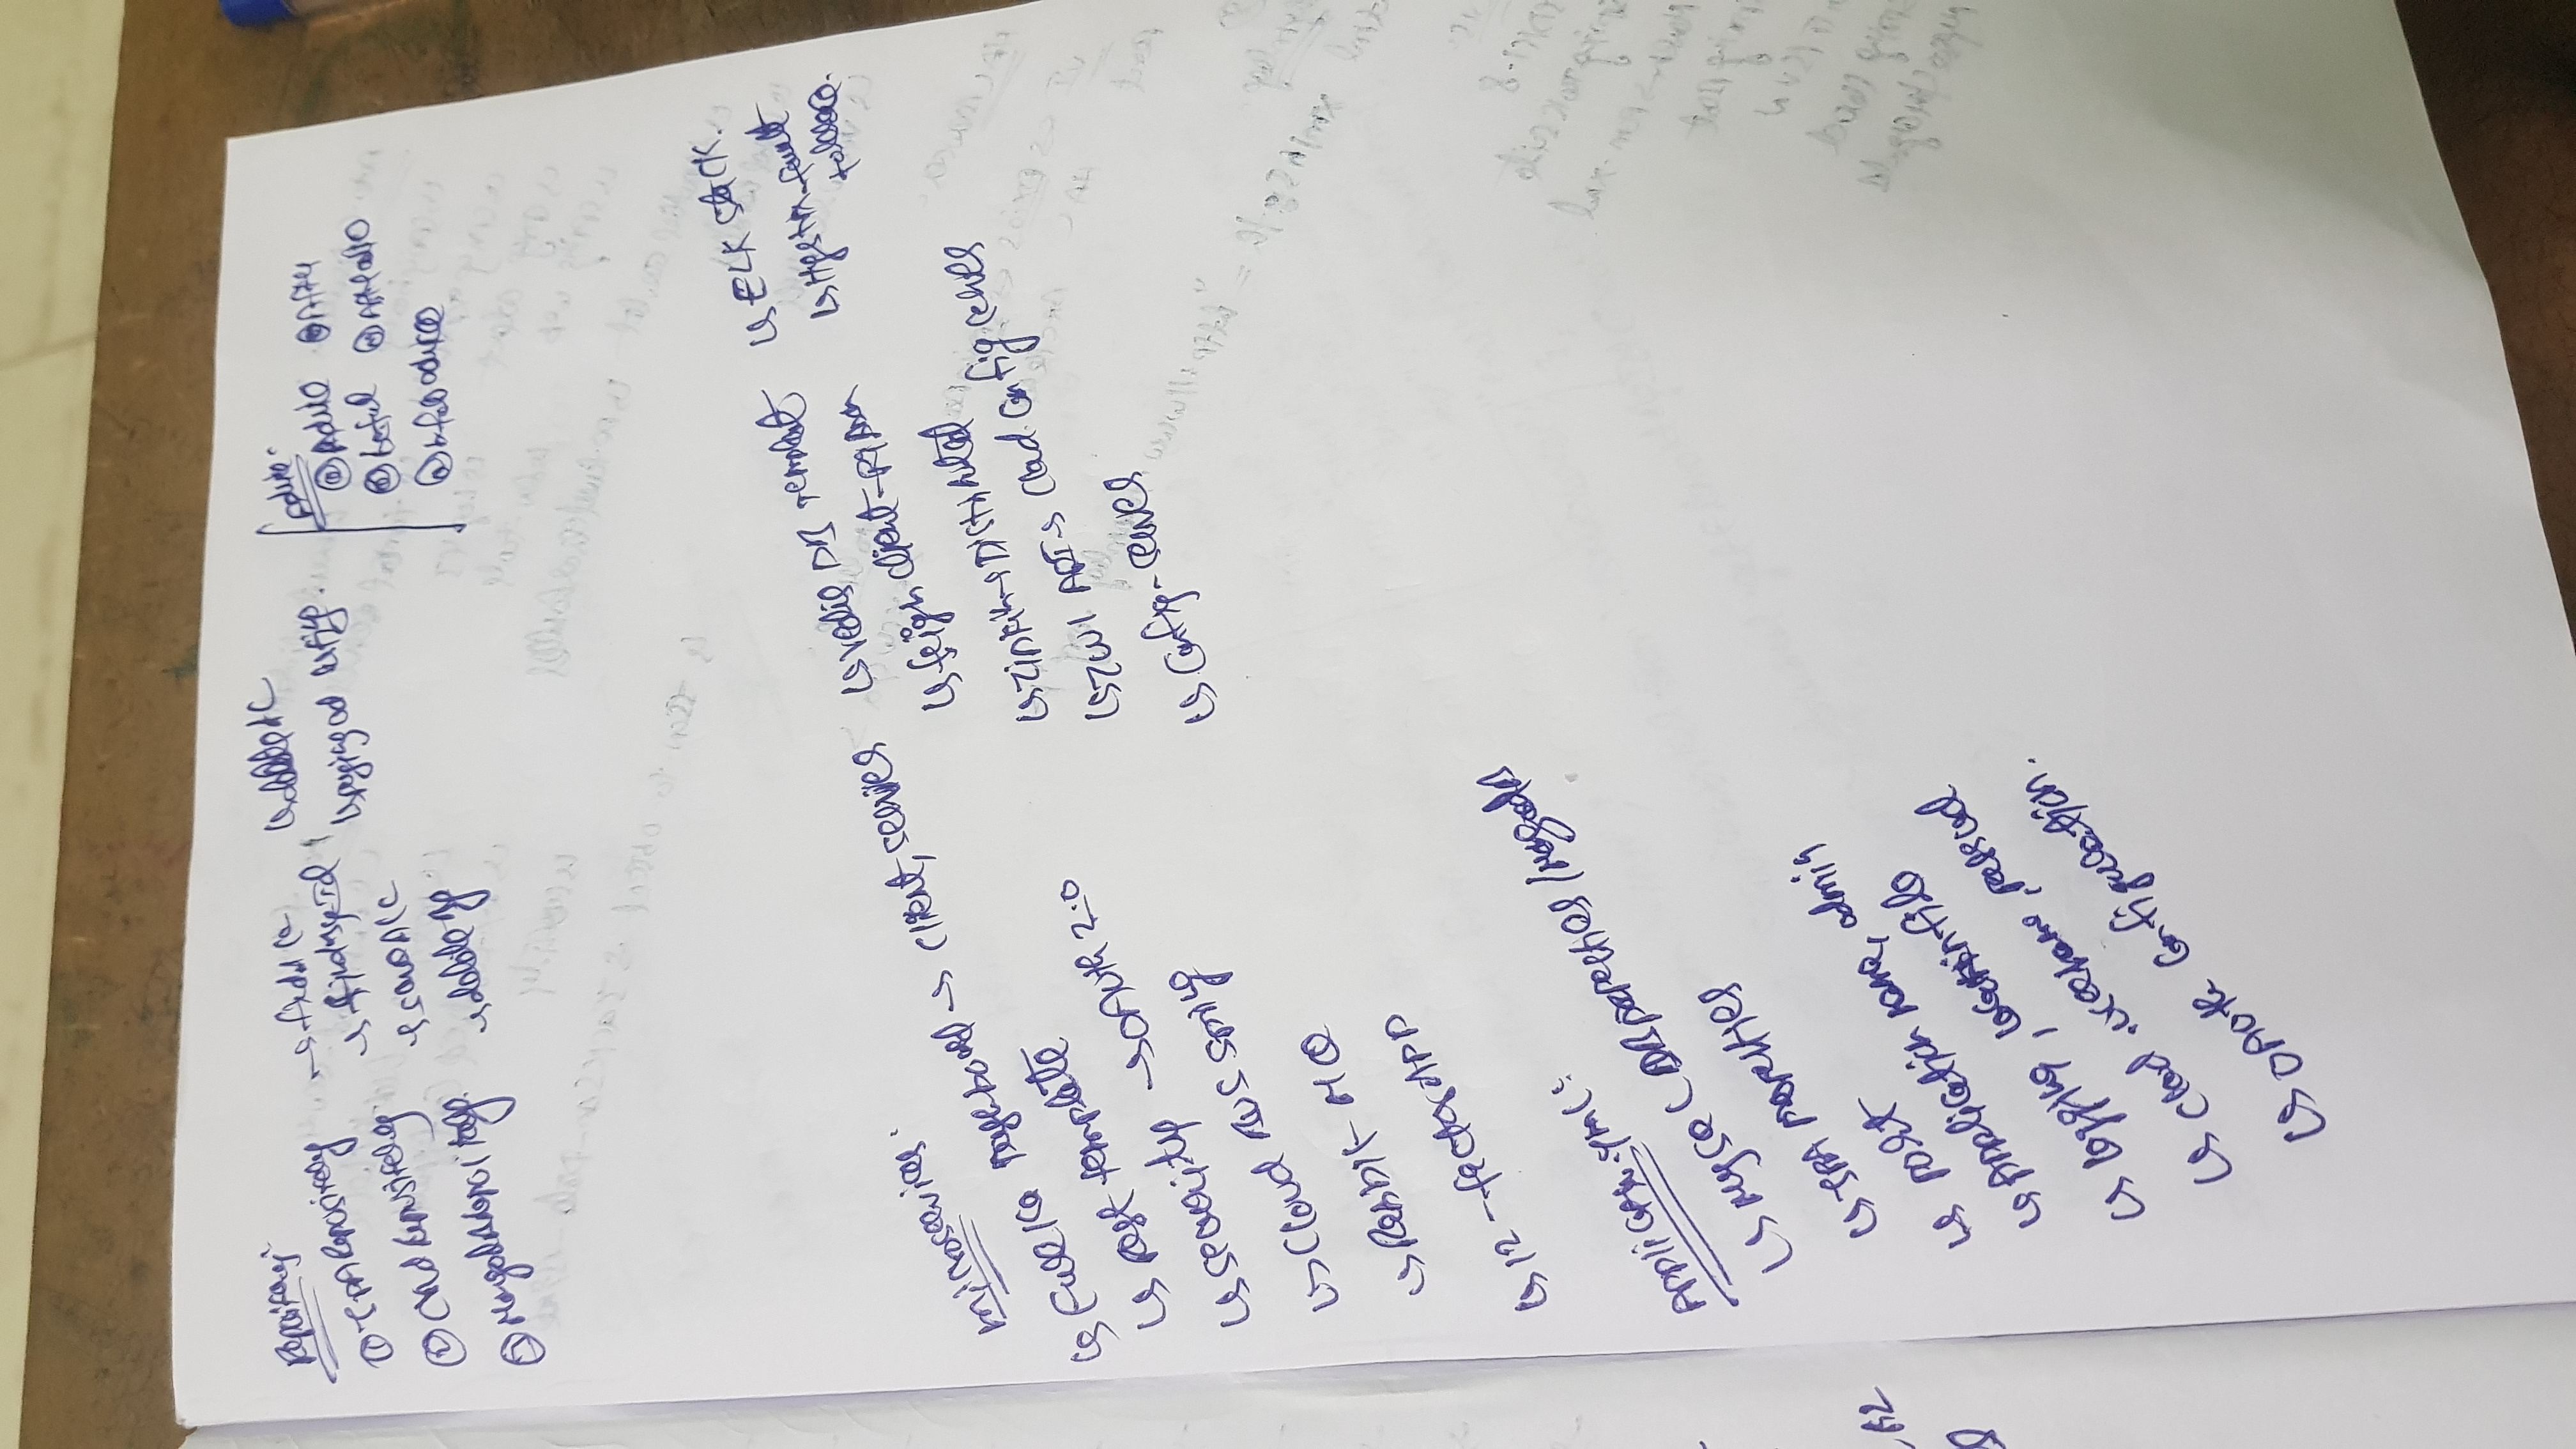 Repository:
① JPA Repository
② Crud Repository
③ MongoDB Repository
→ findAll
→ findById
↳ saveAll
↳ delete By
↳ deleteAll
↳ paging and sorting.
Advice:
@ Advice
@ before
@ After
microservices:
↳ Eureka Dashboard → client, services
↳ Rest template
↳ security → OAuth 2.0
↳ Cloud BUS spring
↳ Rabbit MQ
↳ 12-factor APP
↳ redis DB templat
↳ feign client - Ribbon
↳ Zipkin → Distributed
↳ ZUUl API → Cloud Config server
↳ Config-server
↳ ELK stack.
↳ Hystrix - fault
tolerance.
Application.yml:
↳ MySQL DB properties / MongoDB
↳ JPA properties
↳ Port
↳ Application name, admin
↳ logging, location file
↳ Cloud. username, password
↳ OAuth Configuration.